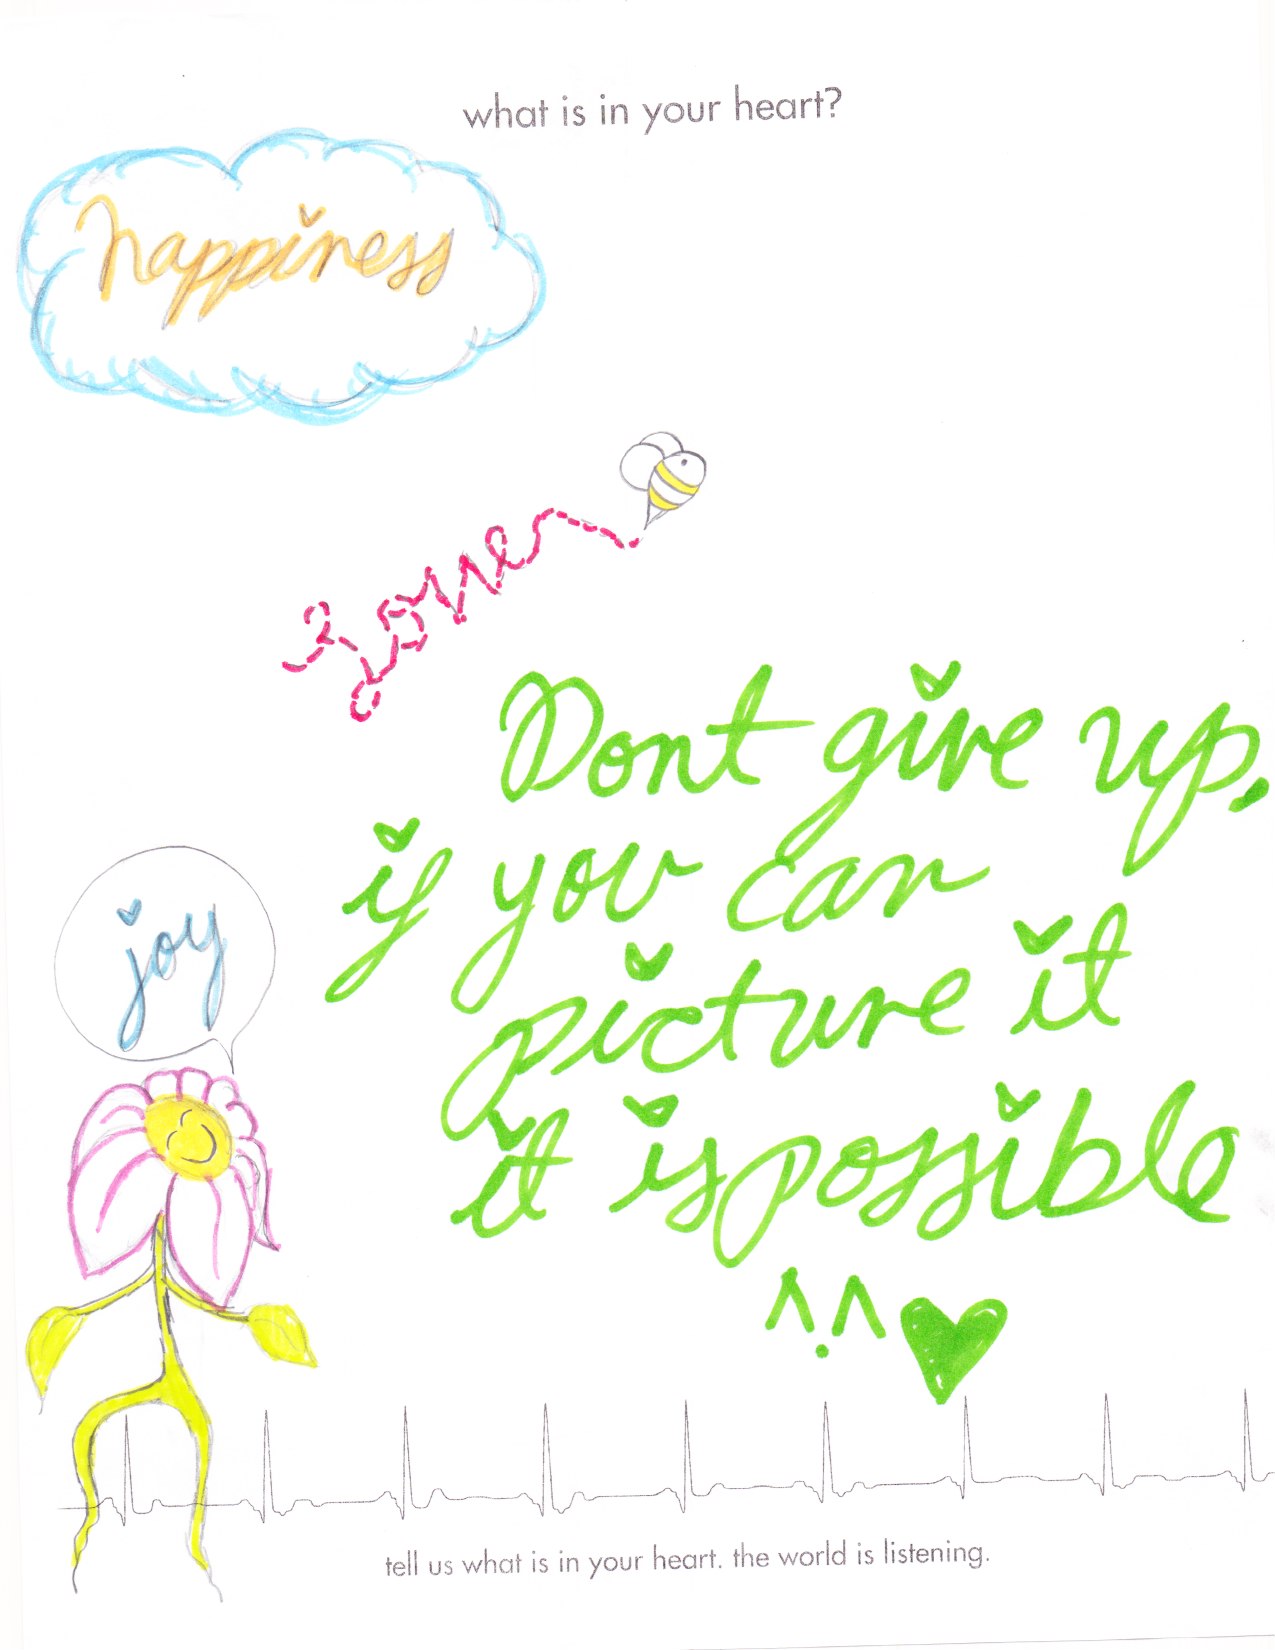 what is in your heart?
happiness
Love
Dont give up,
if you can
picture it
it is possible
joy
tell us what is in your heart. the world is listening.